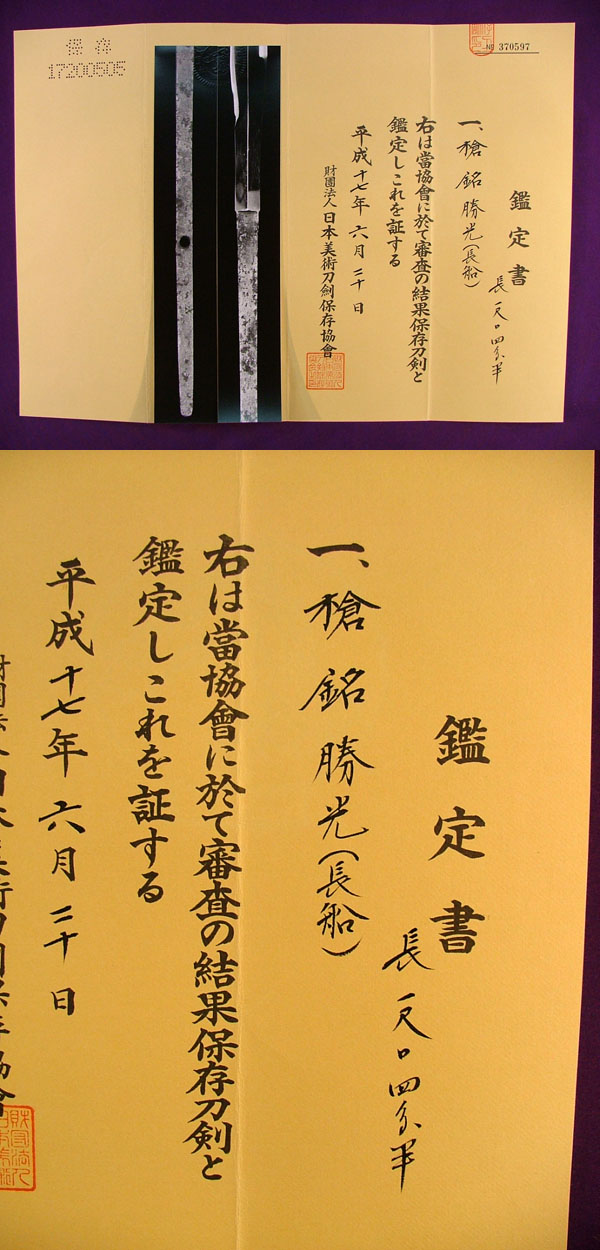 保存
17200505
No 370597
鑑定書
一、槍 銘 勝光(長船)
長 一尺〇四分半
右は當協會に於て審査の結果保存刀剣と
鑑定しこれを証する
平成十七年六月二十日
財團法人日本美術刀劍保存協會
鑑定書
一、槍 銘 勝光(長船)
長 一尺〇四分半
右は當協會に於て審査の結果保存刀剣と
鑑定しこれを証する
平成十七年六月二十日